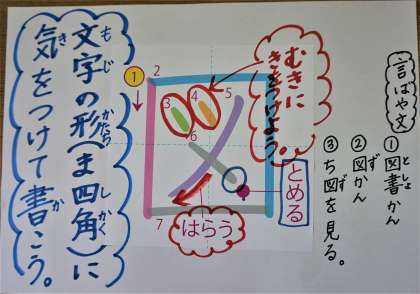 言ばや文
①図書かん
としょ
②図かん
ず
③ち図を見る。
ず
むきに
きをつけよう。
とめる
はらう
①
2
3
4
5
6
7
文字の形(ま四角)に
もじ
かたち
しかく
気をつけて書こう。
き
か